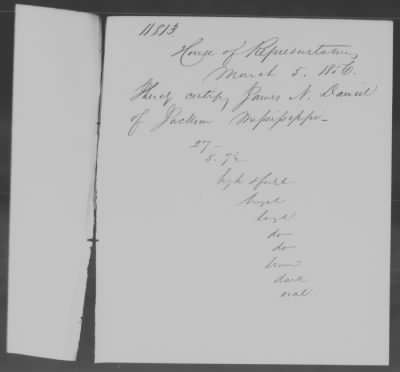 11813
House of Representatives
March 5. 1856.
I hereby certify James N. Daniel
of Jackson Mississippi-
27-
5. 7½
high & full
hazel
large
do
do
brown
dark
oval.